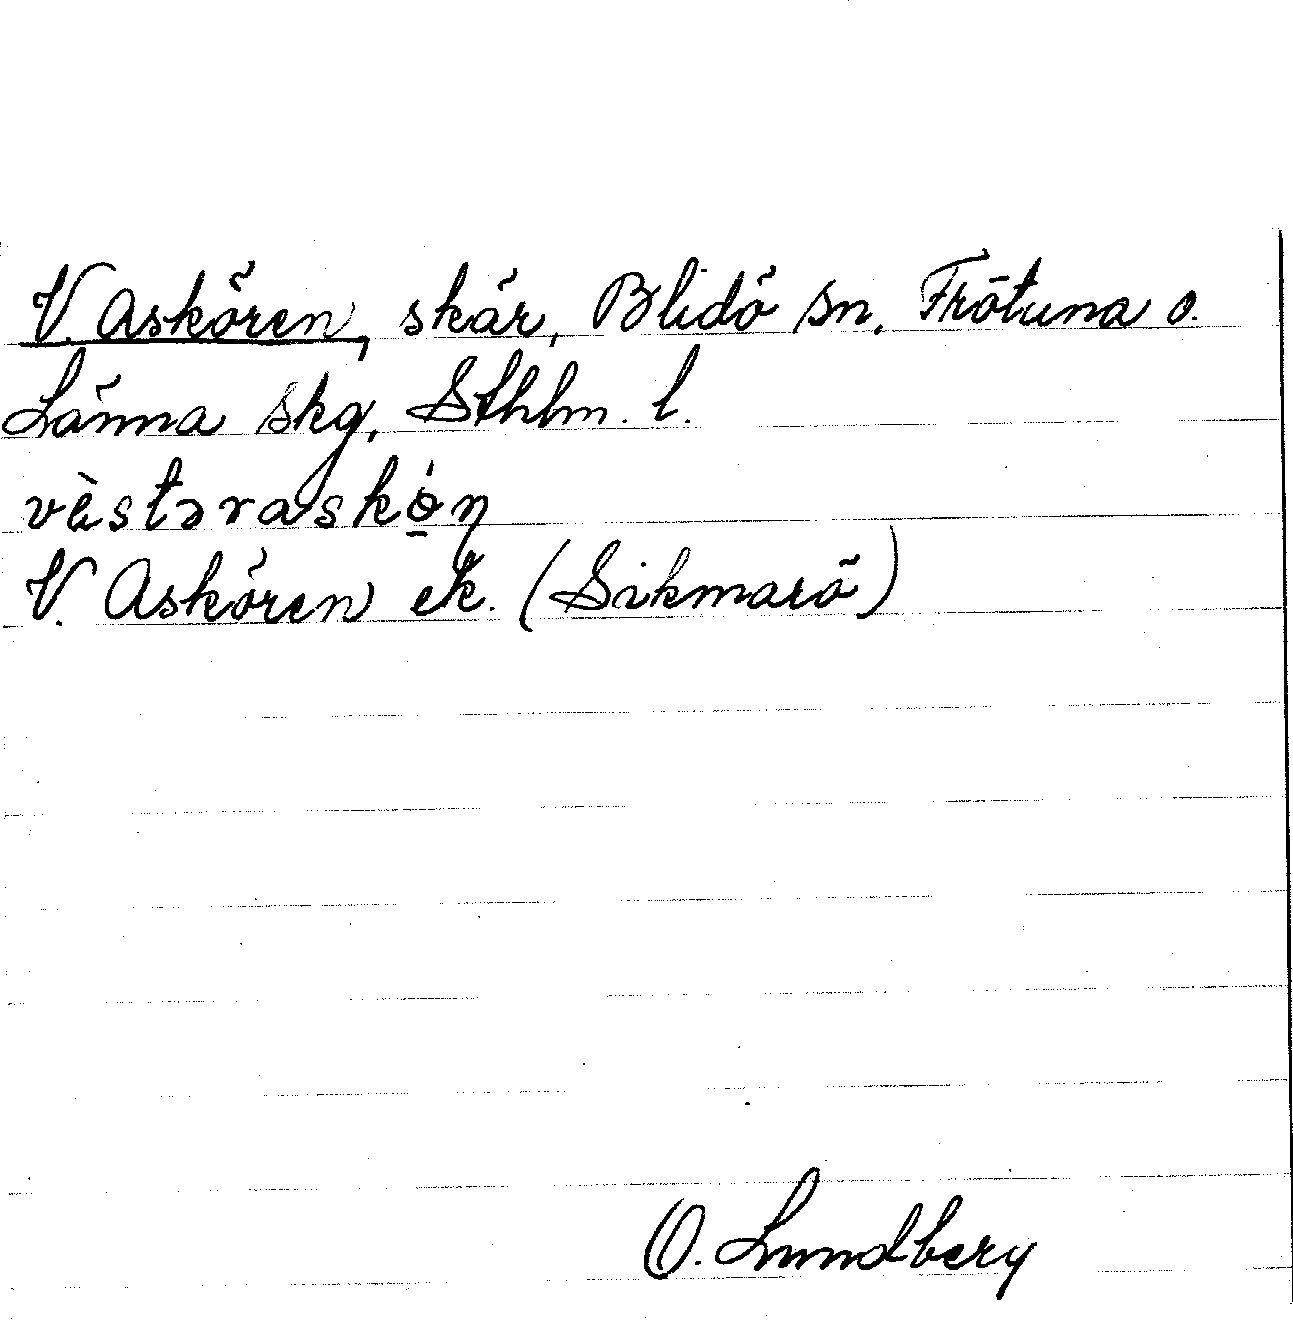 V. Askören, skär, Blidö sn, Frötuna o.
Länna skg, Sthlm. l.
vèstəraskö́ṇ
V. Askören ek. (Sikmarö)
O. Lundberg